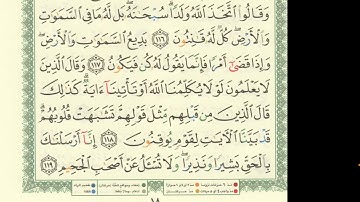 وَقَالُوا۟ ٱتَّخَذَ ٱللَّهُ وَلَدًا ۗ سُبْحَٰنَهُۥ ۖ بَل لَّهُۥ مَا فِى ٱلسَّمَٰوَٰتِ
وَٱلْأَرْضِ ۖ كُلٌّ لَّهُۥ قَٰنِتُونَ ١١٦ بَدِيعُ ٱلسَّمَٰوَٰتِ وَٱلْأَرْضِ ۖ
وَإِذَا قَضَىٰٓ أَمْرًا فَإِنَّمَا يَقُولُ لَهُۥ كُن فَيَكُونُ ١١٧ وَقَالَ ٱلَّذِينَ
لَا يَعْلَمُونَ لَوْلَا يُكَلِّمُنَا ٱللَّهُ أَوْ تَأْتِينَآ ءَايَةٌ ۗ كَذَٰلِكَ
قَالَ ٱلَّذِينَ مِن قَبْلِهِم مِّثْلَ قَوْلِهِمْ ۘ تَشَٰبَهَتْ قُلُوبُهُمْ ۗ
قَدْ بَيَّنَّا ٱلْءَايَٰتِ لِقَوْمٍ يُوقِنُونَ ١١٨ إِنَّآ أَرْسَلْنَٰكَ
بِٱلْحَقِّ بَشِيرًا وَنَذِيرًا ۖ وَلَا تُسْـَٔلُ عَنْ أَصْحَٰبِ ٱلْجَحِيمِ ١١٩
١٨